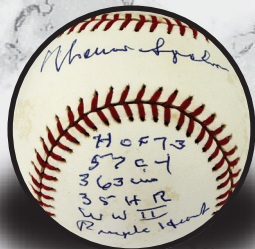 Warren Spahn
HOF 73
57 CY
363 wins
35 HR
WW II
Purple Heart